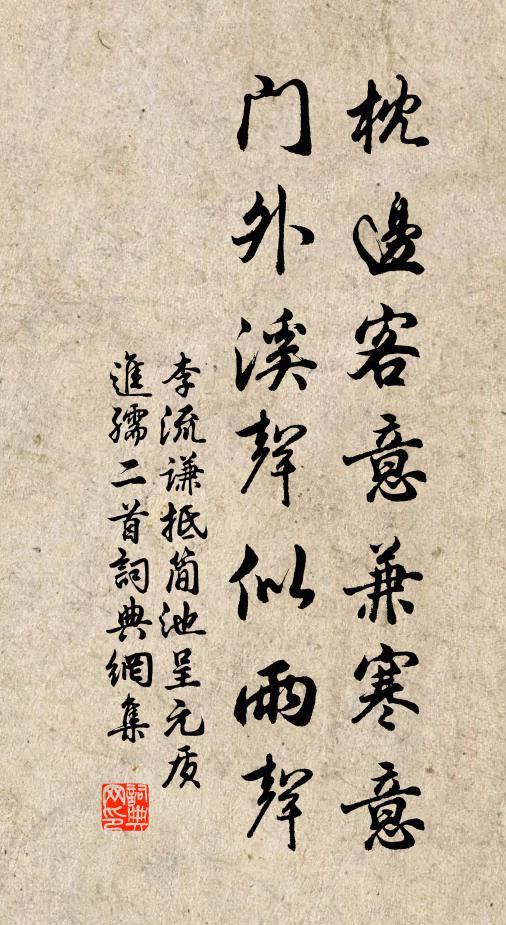 枕邊客意兼寒意
门外溪聲似雨聲
李流谦抵简池呈元质
進孺二首詞典網集
詞典网印